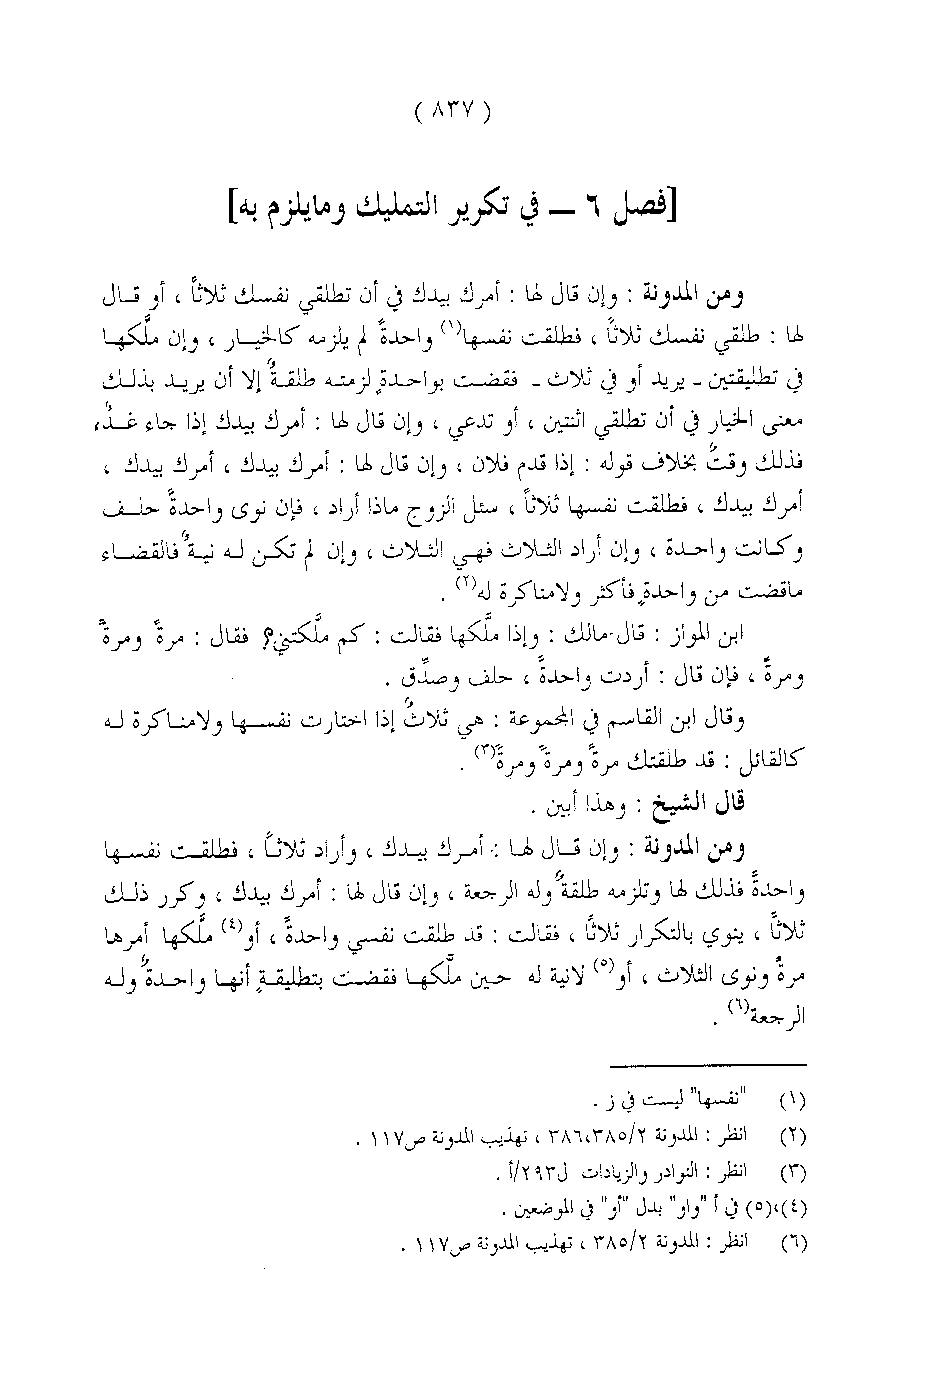 ( ٨٣٧ )
[فصل ٦ ــ في تكرير التمليك ومايلزم به]
ومن المدونة : وإن قال لها : أمرك بيدك في أن تطلقي نفسك ثلاثاً ، أو قال
لها : طلقي نفسك ثلاثاً ، فطلقت نفسها(١) واحدةً لم يلزمه كالخيار ، وإن ملَّكها
في تطليقتين ـ يريد أو في ثلاث ـ فقضت بواحدةٍ لزمته طلقةٌ إلا أن يريد بذلك
معنى الخيار في أن تطلقي اثنتين ، أو تدعي ، وإن قال لها : أمرك بيدك إذا جاء غدٌ،
فذلك وقتٌ بخلاف قوله : إذا قدم فلان ، وإن قال لها : أمرك بيدك ، أمرك بيدك ،
أمرك بيدك ، فطلقت نفسها ثلاثاً ، سئل الزوج ماذا أراد ، فإن نوى واحدةً حلف
وكانت واحدة ، وإن أراد الثلاث فهي الثلاث ، وإن لم تكن له نيةٌ فالقضاء
ماقضت من واحدةٍ فأكثر ولامناكرة له(٢) .
ابن المواز : قال مالك : وإذا ملَّكها فقالت : كم ملَّكتني؟ فقال : مرةً ومرةً
ومرةً ، فإن قال : أردت واحدةً ، حلف وصدِّق .
وقال ابن القاسم في المجموعة : هي ثلاثٌ إذا اختارت نفسها ولامناكرة له
كالقائل : قد طلقتك مرةً ومرةً ومرةً(٣) .
قال الشيخ : وهذا أبين .
ومن المدونة : وإن قال لها : أمرك بيدك ، وأراد ثلاثاً ، فطلقت نفسها
واحدةً فذلك لها وتلزمه طلقةٌ وله الرجعة ، وإن قال لها : أمرك بيدك ، وكرر ذلك
ثلاثاً ، ينوي بالتكرار ثلاثاً ، فقالت : قد طلقت نفسي واحدةً ، أو(٤) ملَّكها أمرها
مرةً ونوى الثلاث ، أو(٥) لانية له حين ملَّكها فقضت بتطليقةٍ أنها واحدةٌ وله
الرجعة(٦) .
(١) "نفسها" ليست في ز .
(٢) انظر : المدونة ٣٨٦،٣٨٥/٢ ، تهذيب المدونة ص١١٧ .
(٣) انظر : النوادر والزيادات ل٢٩٣/أ .
(٤)،(٥) في أ "واو" بدل "أو" في الموضعين .
(٦) انظر : المدونة ٣٨٥/٢ ، تهذيب المدونة ص١١٧ .